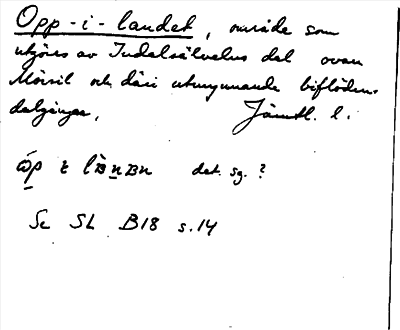 Opp-i-landet, område som
utgöres av Indalsälvens dal ovan
Mörsil och däri utmynnande biflödens
dalgångar. Jämtl. l.
dat. sg. ?
Se SL B18 s.14